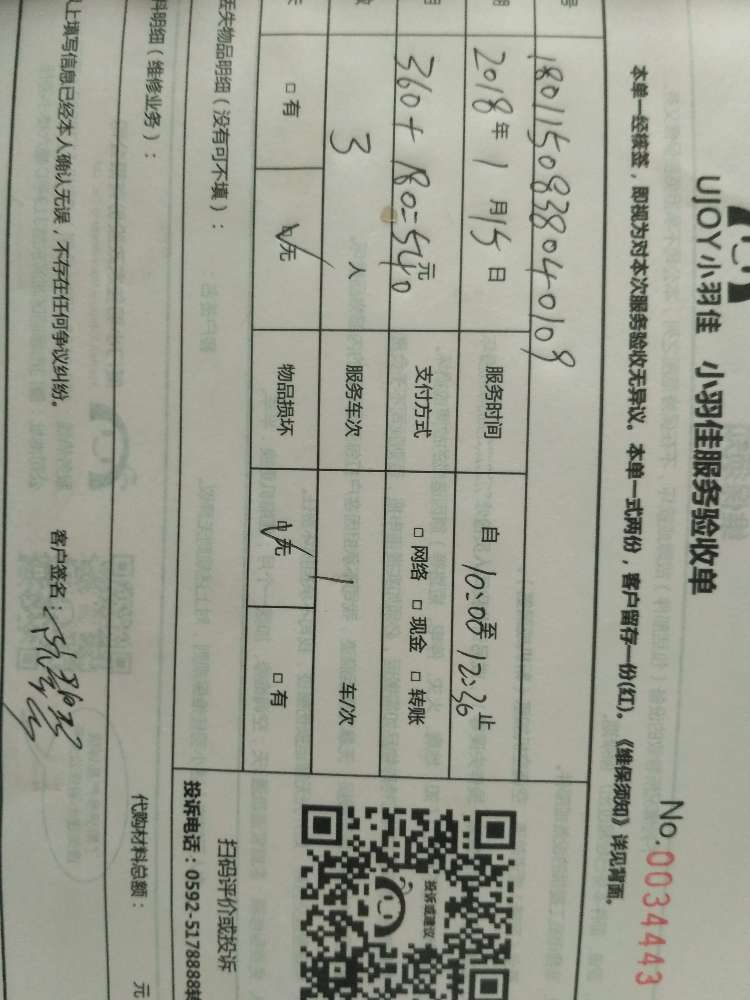 UJOY小羽佳 小羽佳服务验收单
No.0034443
本单一经核签，即视为对本次服务验收无异议。本单一式两份，客户留存一份(红)。《维保须知》详见背面。
号 18011508384040109
期 2018年1月15日 服务时间 自10:00至12:36止
360+180=540元 支付方式 □网络 □现金 □转账
数 3人 服务车次 1 车/次
失 □有 ☑无 物品损坏 ☑无 □有
丢失物品明细（没有可不填）：
投诉或建议
扫码评价或投诉
投诉电话：0592-5178888转
料明细（维修业务）：
代购材料总额： 元
以上填写信息已经本人确认无误，不存在任何争议纠纷。 客户签名：